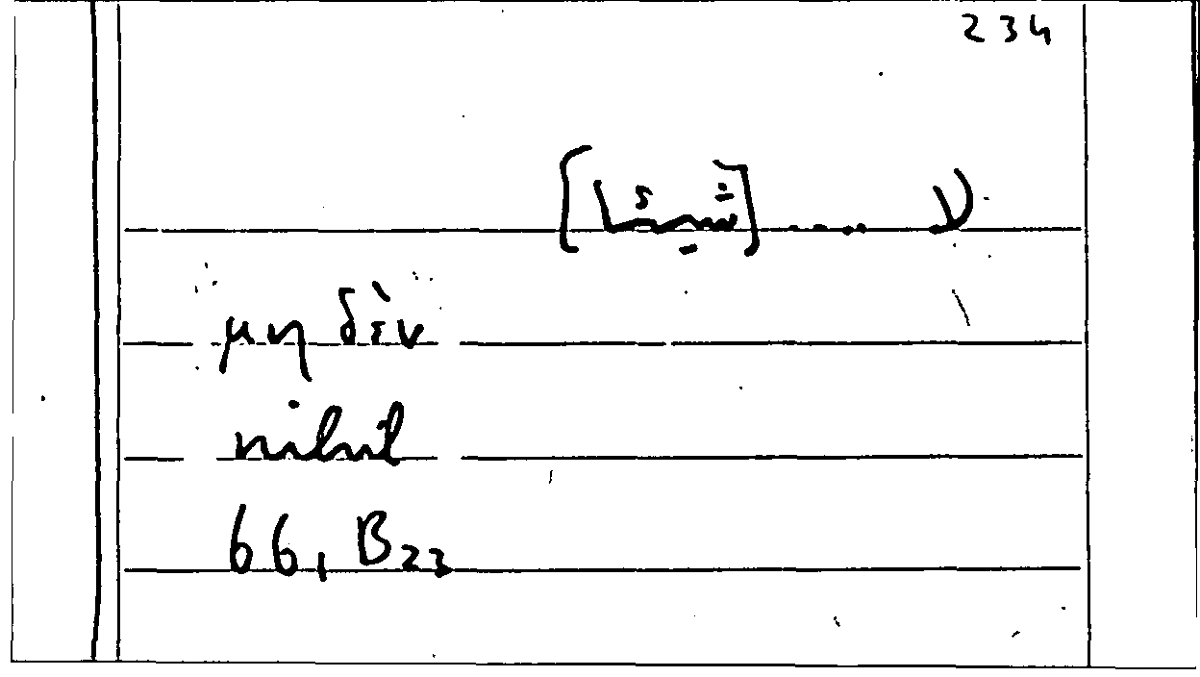 234
لا ..... [شيئا]
μηδὲν
nihil
66, B23